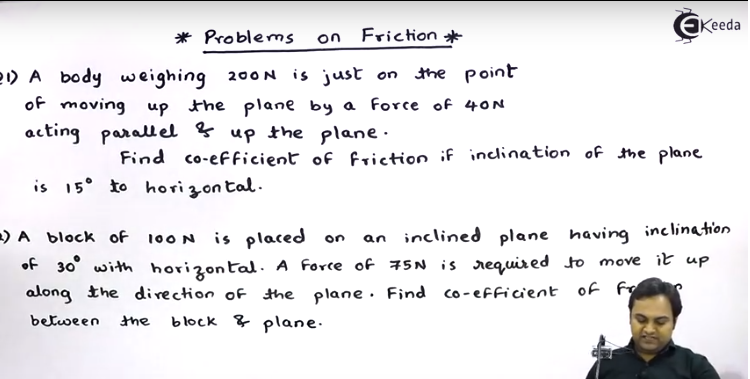 * Problems on Friction *
EKeeda
1) A body weighing 200N is just on the point
of moving up the plane by a force of 40N
acting parallel & up the plane.
Find co-efficient of friction if inclination of the plane
is 15° to horizontal.
) A block of 100N is placed on an inclined plane having inclination
of 30° with horizontal. A force of 75N is required to move it up
along the direction of the plane. Find co-efficient of
between the block & plane.